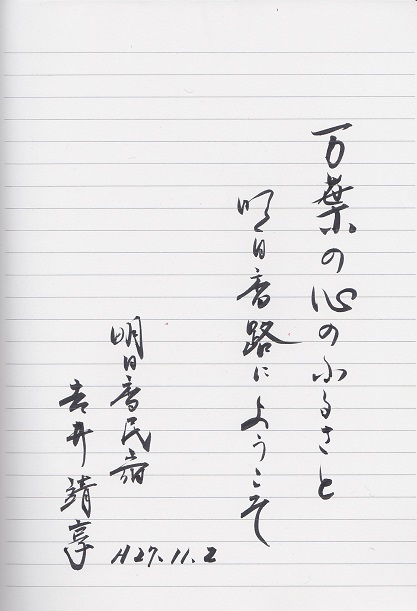 万葉の心のふるさと
明日香路にようこそ
明日香民宿
吉井靖享
H27.11.2